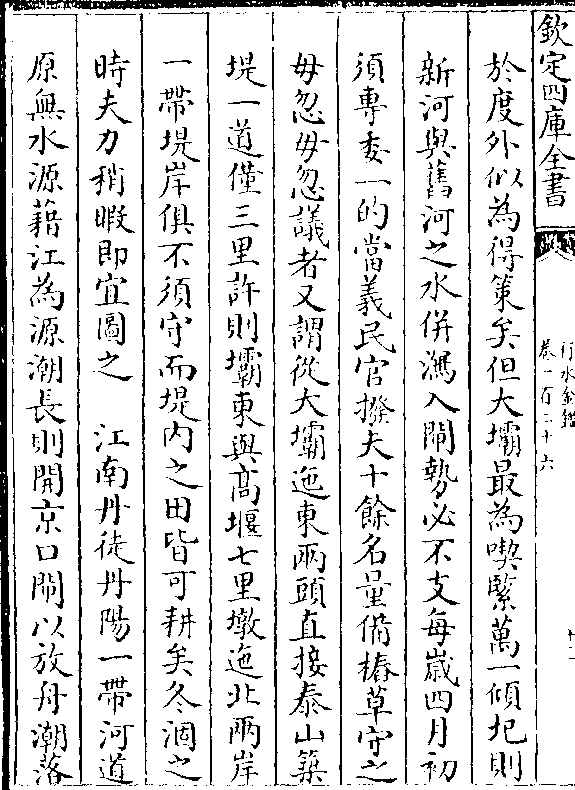 欽定四庫全書
行水金鑑
卷一百二十六
十二
於度外似為得策矣但大壩最為喫緊萬一傾圮則
新河與舊河之水併瀉入閘勢必不支每嵗四月初
須專委一的當義民官撥夫十餘名量備樁草守之
毋忽毋忽議者又謂從大壩迤東兩頭直接泰山築
堤一道僅三里許則壩東與髙堰七里墩迤北兩岸
一帶堤岸俱不須守而堤内之田皆可耕矣冬涸之
時夫力稍暇即宜圖之　江南丹徒丹陽一帶河道
原無水源藉江為源潮長則開京口閘以放舟潮落